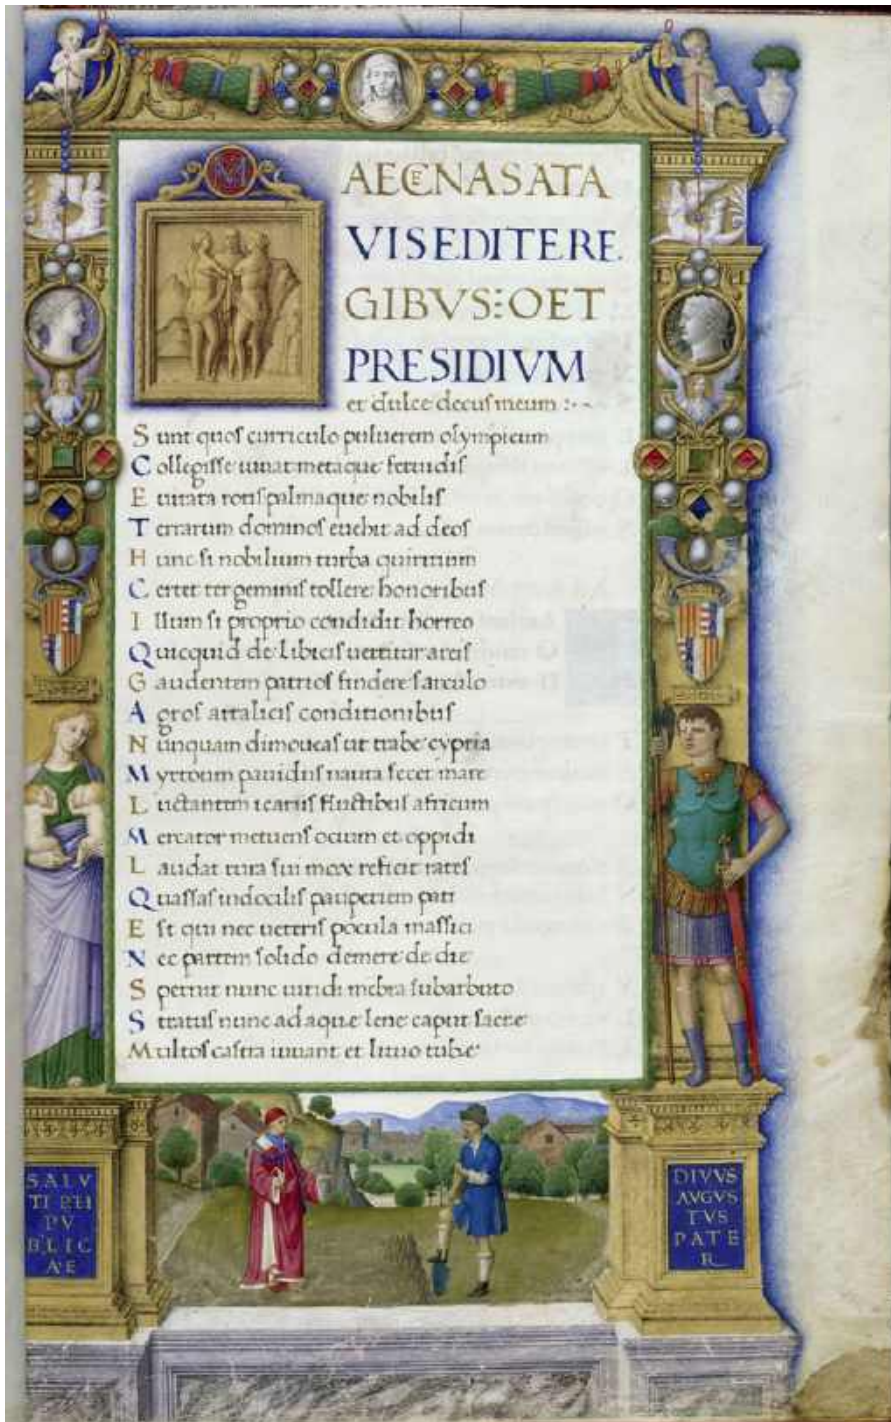 M
AECENAS ATA
VIS EDITE RE.
GIBUS: O ET
PRESIDIVM
et dulce decus meum :~
Sunt quos curriculo puluerem olympicum
Collegisse iuuat metaque feruidis
Euitata rotis palmaque nobilis
Terrarum dominos euehit ad deos
Hunc si nobilium turba quiritium
Certet tergeminis tollere honoribus
Illum si proprio condidit horreo
Quicquid de libicis uertitur areis
Gaudentem patrios findere sarculo
Agros attalicis conditionibus
Nunquam dimoueas ut trabe cypria
Myrtoum pauidus nauta secet mare
Luctantem icariis fluctibus africum
Mercator metuens ocium et oppidi
Laudat rura sui mox reficit rates
Quassas indocilis pauperiem pati
Est qui nec ueteris pocula massici
Nec partem solido demere de die
Spernit nunc uiridi mẽbra sub arbuto
Stratus nunc ad aquæ lene caput sacre
Multos castra iuuant et lituo tubæ
SALV
TI REI
PV
BLIC
AE
DIVVS
AVGVS
TVS
PATE
R